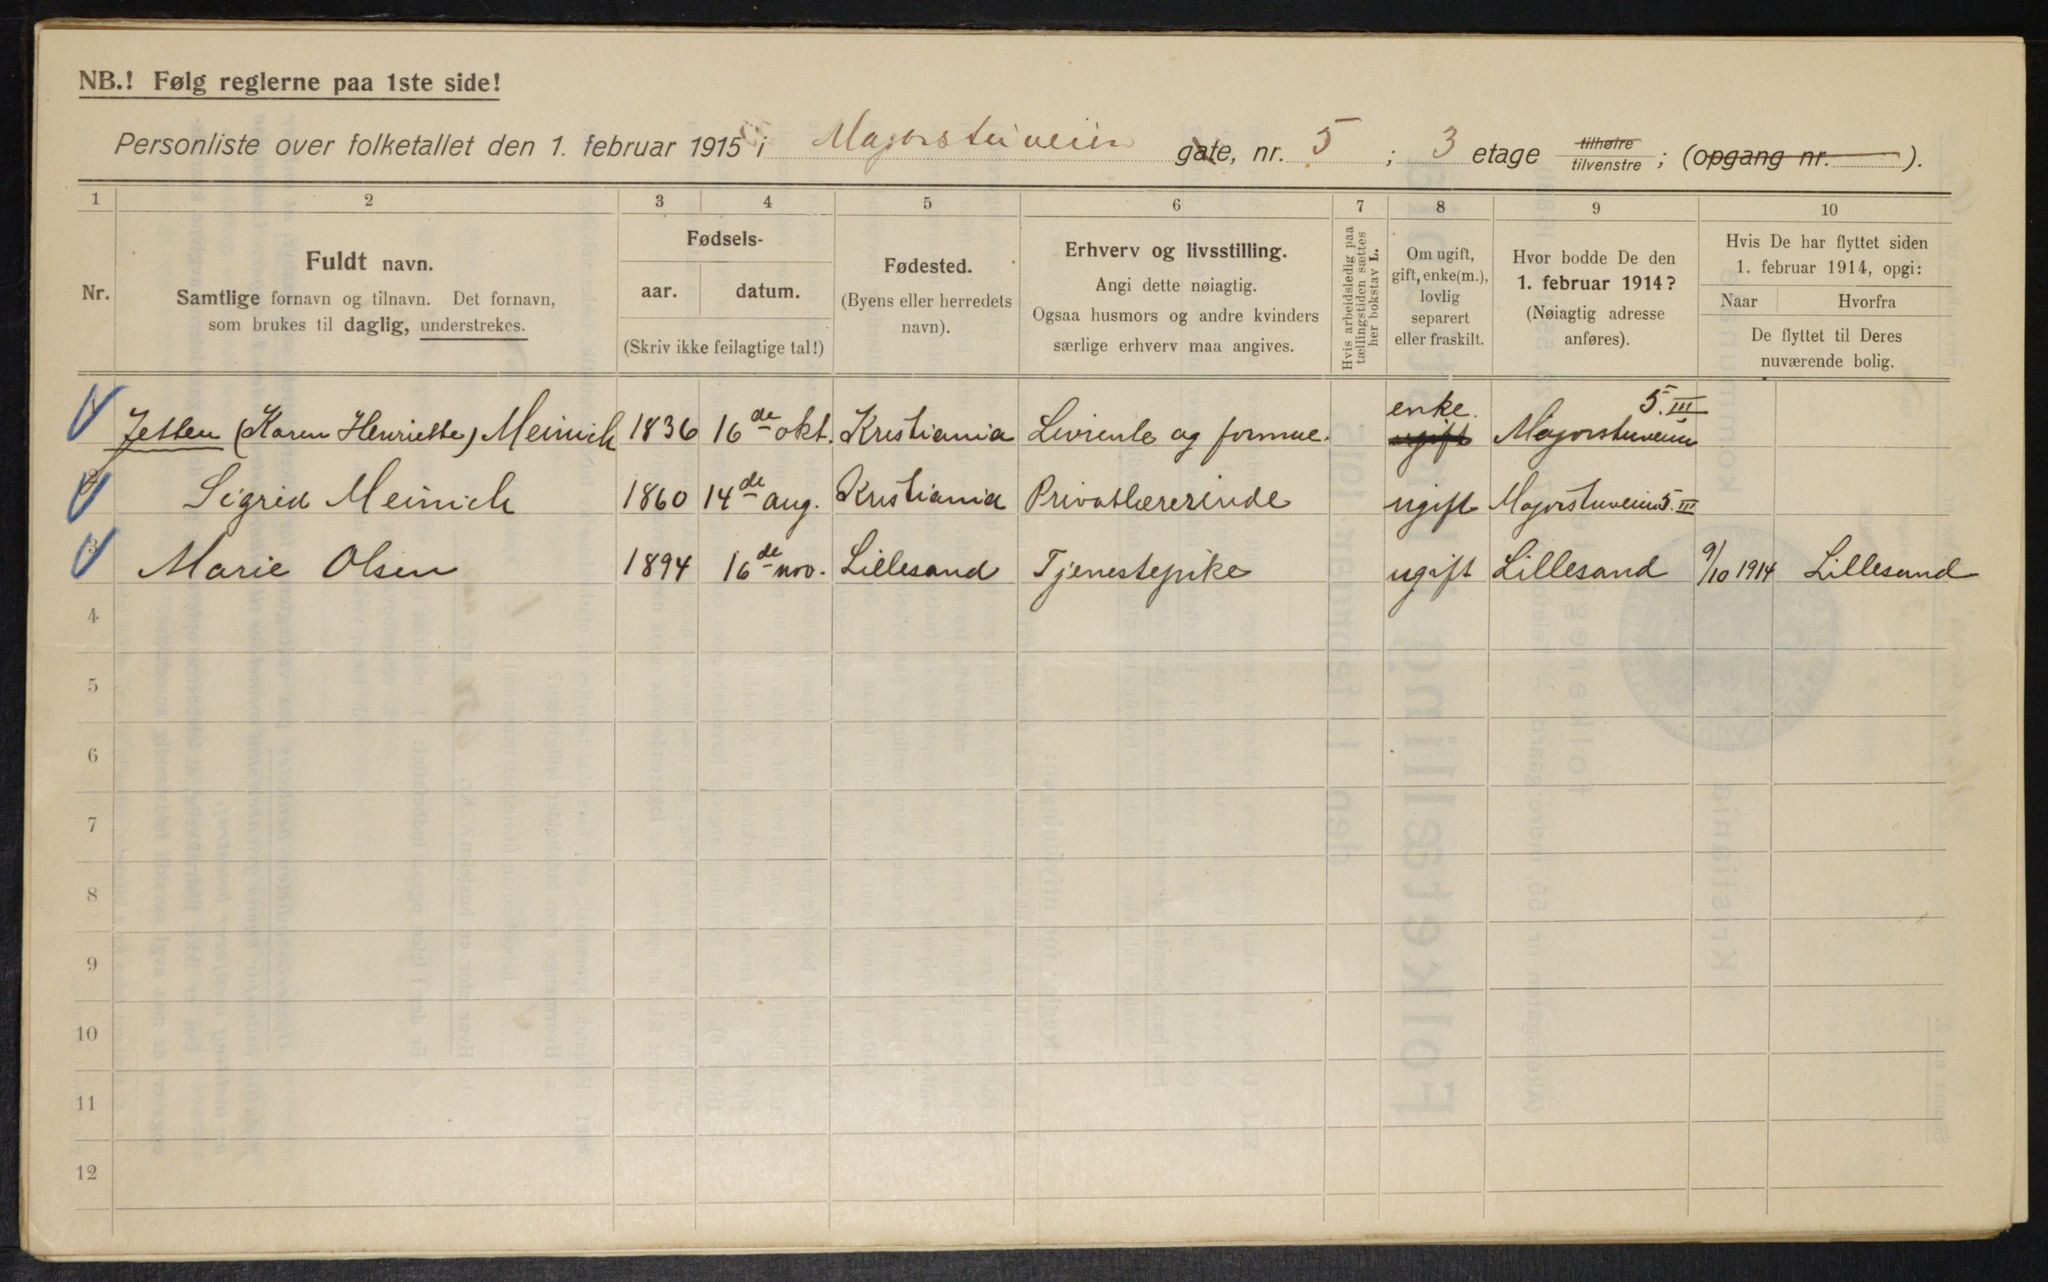 NB.! Følg reglerne paa 1ste side!
Personliste over folketallet den 1. februar 1915 i Majorstuveien gate, nr. 5 ; 3 etage tilhøire tilvenstre ; (opgang nr. ).
1 2 3 4 5 6 7 8 9 10
Nr.
Fuldt navn.
Samtlige fornavn og tilnavn. Det fornavn,
som brukes til daglig, understrekes.
Fødsels-
aar. datum.
(Skriv ikke feilagtige tal!)
Fødested.
(Byens eller herredets
navn).
Erhverv og livsstilling.
Angi dette nøiagtig.
Ogsaa husmors og andre kvinders
særlige erhverv maa angives.
Hvis arbeidsledig paa
tællingstiden sættes
her bokstav L.
Om ugift,
gift, enke(m.),
lovlig
separert
eller fraskilt.
Hvor bodde De den
1. februar 1914?
(Nøiagtig adresse
anføres).
Hvis De har flyttet siden
1. februar 1914, opgi:
Naar Hvorfra
De flyttet til Deres
nuværende bolig.
1 Jetten (Karen Henriette) Meinich 1836 16de okt. Kristiania Livrente og formue. enke. ugift Majorstuveien 5. III
2 Sigrid Meinich 1860 14de aug. Kristiania Privatlærerinde ugift Majorstuveien 5. III
3 Marie Olsen 1894 16de nov. Lillesand Tjenestepike ugift Lillesand 9/10 1914 Lillesand
4
5
6
7
8
9
10
11
12